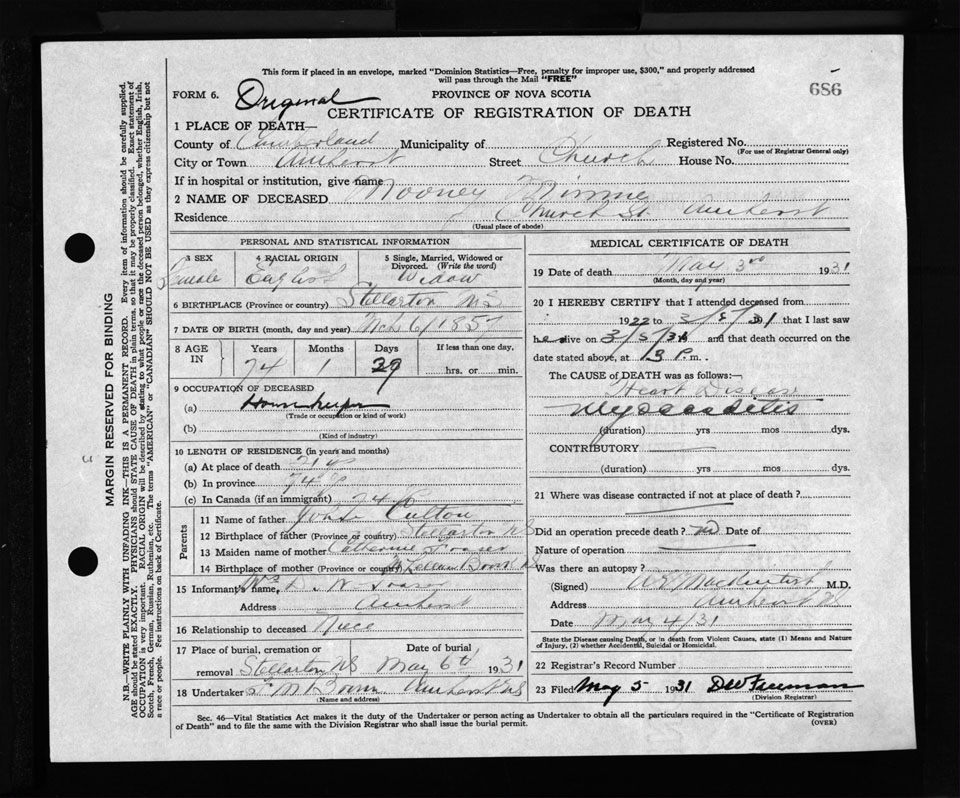 This form if placed in an envelope, marked "Dominion Statistics—Free, penalty for improper use, $300," and properly addressed
will pass through the Mail "FREE"
686
FORM 6. Original
PROVINCE OF NOVA SCOTIA
CERTIFICATE OF REGISTRATION OF DEATH
1 PLACE OF DEATH—
County of Cumberland Municipality of Registered No.
(For use of Registrar General only)
City or Town Amherst Street Church House No.
If in hospital or institution, give name
2 NAME OF DECEASED Mooney Minnie
Residence Church St. Amherst
(Usual place of abode)
PERSONAL AND STATISTICAL INFORMATION
3 SEX 4 RACIAL ORIGIN 5 Single, Married, Widowed or
Divorced. (Write the word)
Female English Widow
6 BIRTHPLACE (Province or country) Stellarton N S
7 DATE OF BIRTH (month, day and year) Mch 6/1857
8 AGE IN Years Months Days If less than one day,
74 1 29 hrs. or min.
9 OCCUPATION OF DECEASED
(a) Housekeeper
(Trade or occupation or kind of work)
(b)
(Kind of industry)
10 LENGTH OF RESIDENCE (in years and months)
(a) At place of death
(b) In province 74
(c) In Canada (if an immigrant) 74
Parents
11 Name of father Culton
12 Birthplace of father (Province or country) Stellarton NS
13 Maiden name of mother Catherine Fraser
14 Birthplace of mother (Province or country)
15 Informant's name, Mrs D. W. Fraser
Address Amherst
16 Relationship to deceased Niece
17 Place of burial, cremation or Date of burial
removal Stellarton NS May 6th 1931
18 Undertaker Amherst NS
(Name and address)
MEDICAL CERTIFICATE OF DEATH
19 Date of death May 3rd 1931
(Month, day and year)
20 I HEREBY CERTIFY that I attended deceased from
1922 to 3/5/31 that I last saw
her alive on 3/5/31 and that death occurred on the
date stated above, at 3 P m.
The CAUSE of DEATH was as follows:
Heart Disease
Myocarditis
(duration) yrs mos dys.
CONTRIBUTORY
(duration) yrs mos dys.
21 Where was disease contracted if not at place of death?
Did an operation precede death? no Date of
Nature of operation
Was there an autopsy?
(Signed) MacKintosh M.D.
Address Amherst NS
Date May 4/31
State the Disease causing Death, or in death from Violent Causes, state (1) Means and Nature
of Injury, (2) whether Accidental, Suicidal or Homicidal.
22 Registrar's Record Number
23 Filed May 5 1931 DW Freeman
(Division Registrar)
Sec. 46—Vital Statistics Act makes it the duty of the Undertaker or person acting as Undertaker to obtain all the particulars required in the "Certificate of Registration
of Death" and to file the same with the Division Registrar who shall issue the burial permit.
(OVER)
MARGIN RESERVED FOR BINDING
N.B.—WRITE PLAINLY WITH UNFADING INK—THIS IS A PERMANENT RECORD. Every item of information should be carefully supplied.
AGE should be stated EXACTLY. PHYSICIANS should STATE CAUSE OF DEATH in plain terms, so that it may be properly classified. Exact statement of
OCCUPATION is very important. RACIAL ORIGIN will be described by stating to what people or race the deceased person belonged, whether English, Irish,
Scotch, French, German, Russian, Ruthenian, etc. The terms "AMERICAN" or "CANADIAN" SHOULD NOT BE USED as they express citizenship but not
a race or people. Fee instructions on back of Certificate.